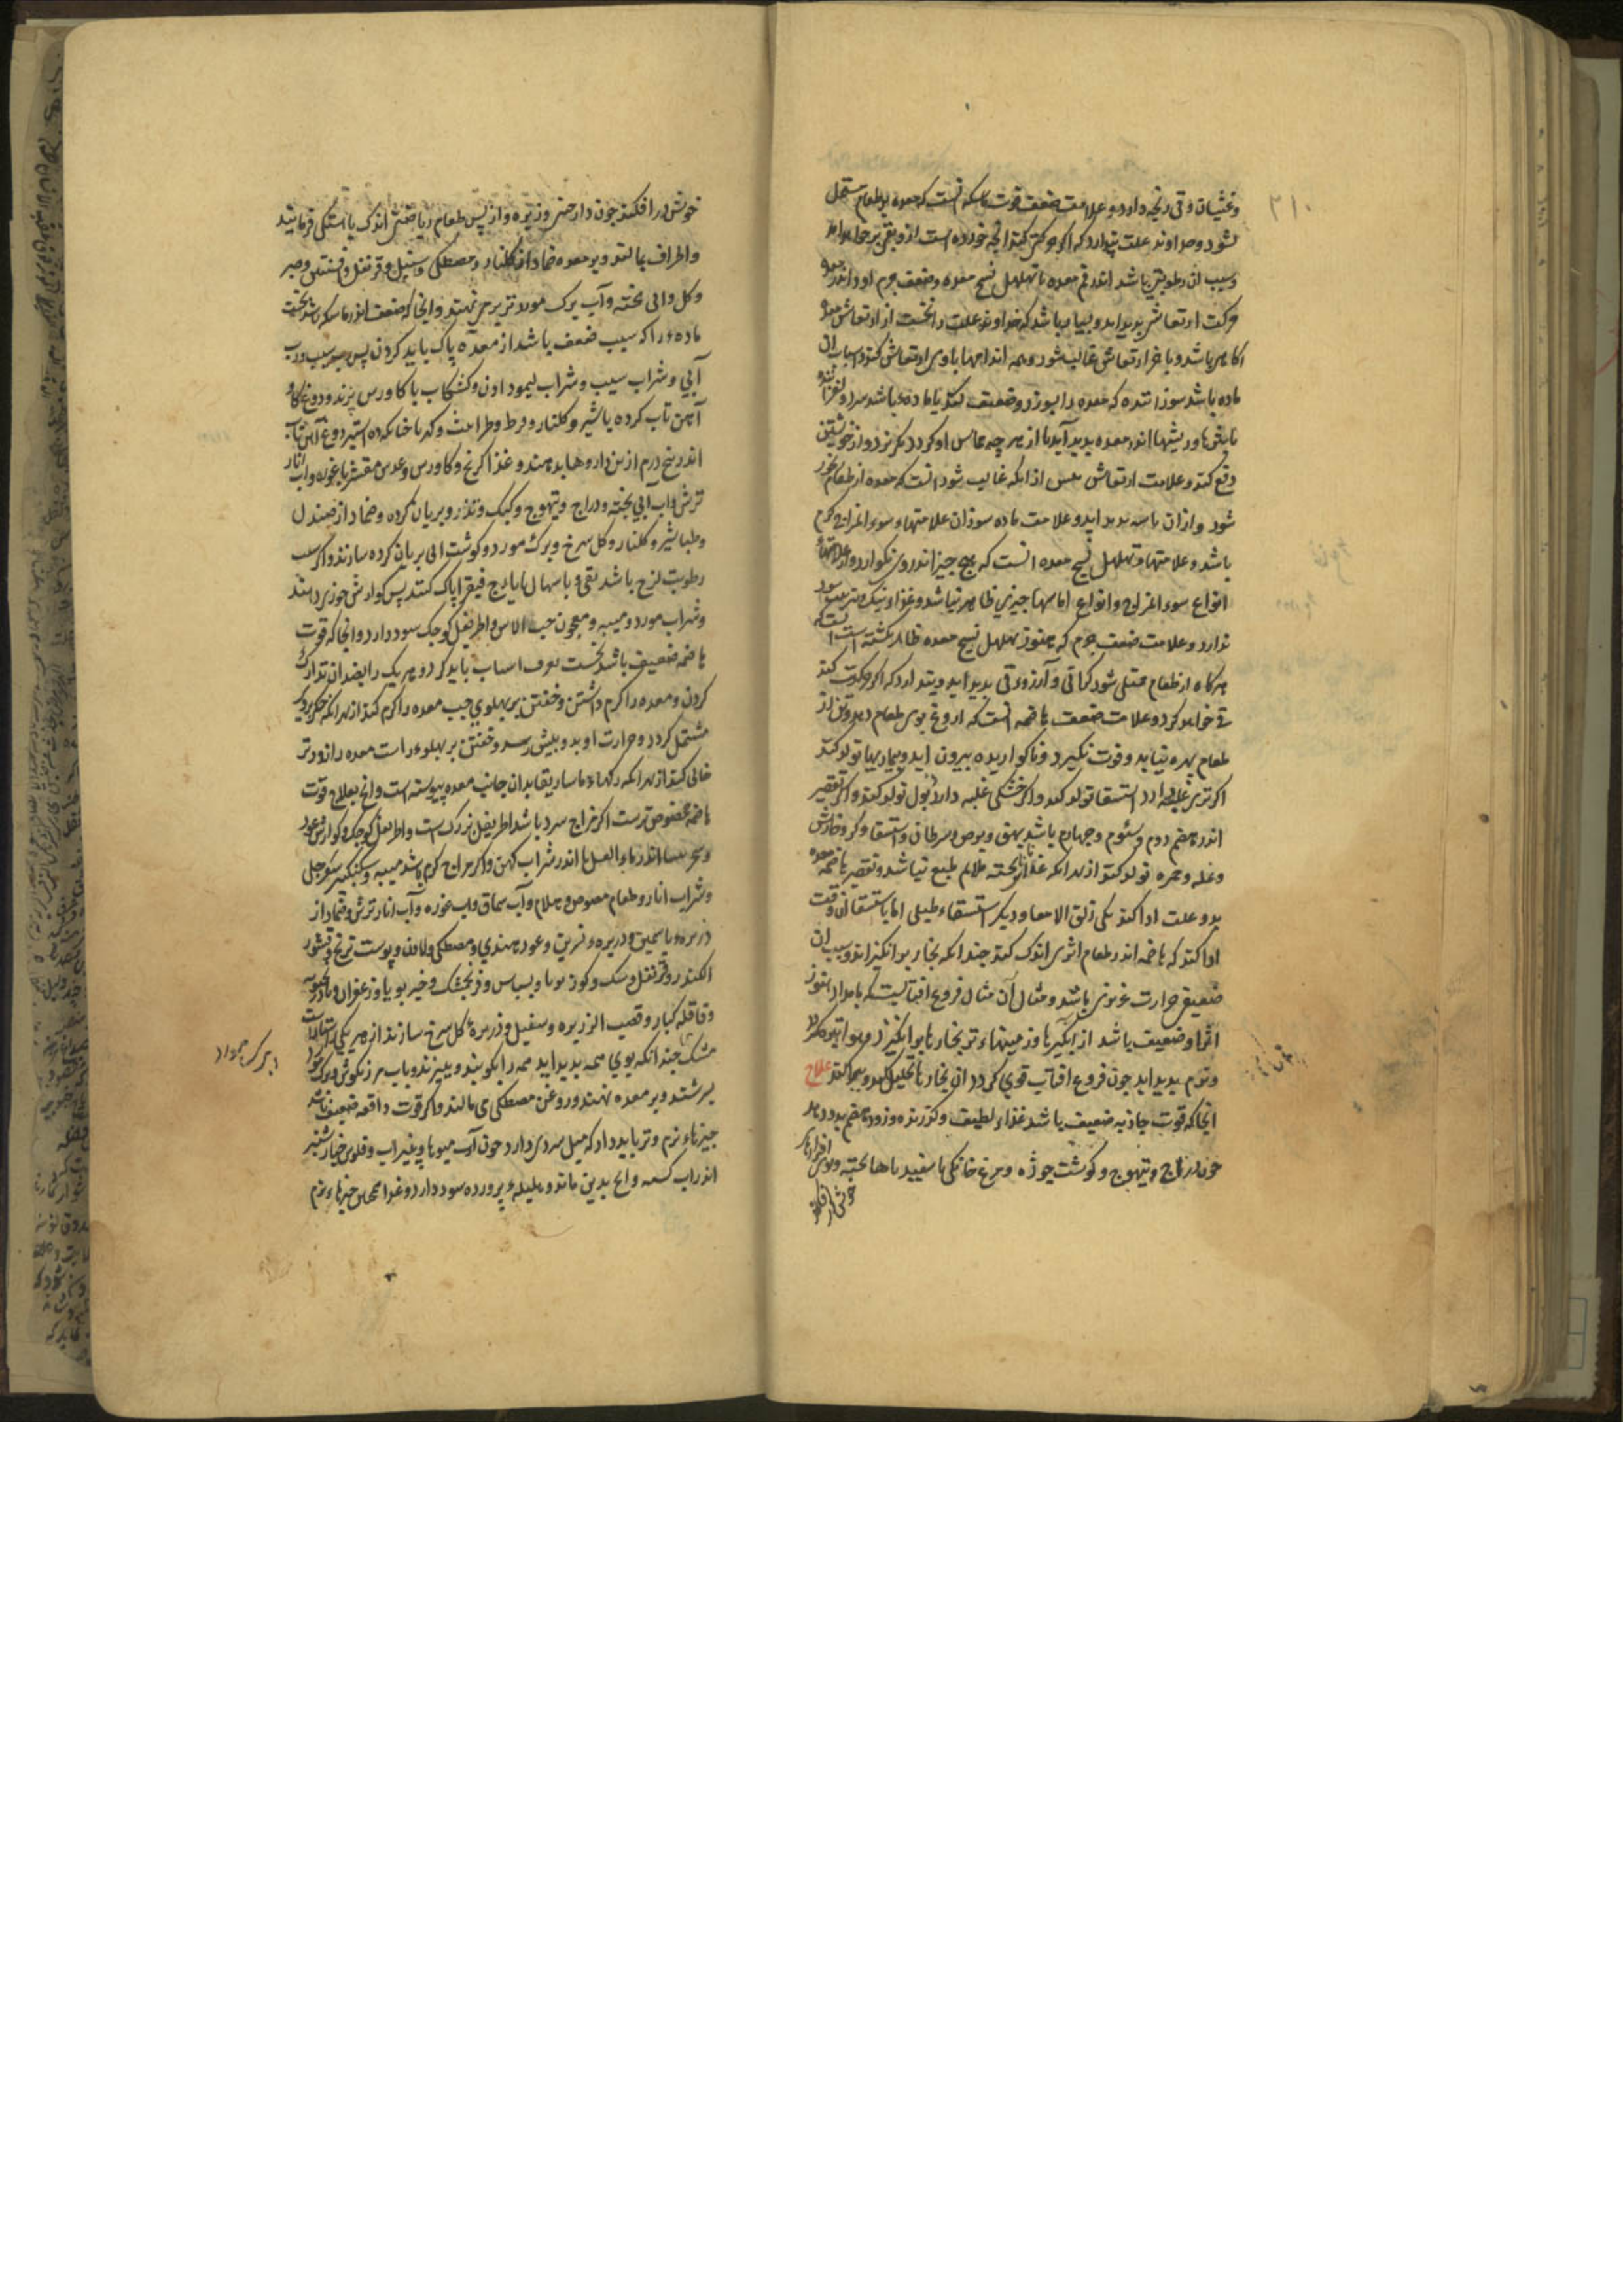 ۲۱۰
وغثیان وقی رنجه دارد وعلامت ضعف قوت ماسکه انست که معده بر طعام مشتمل
نشود وخداوند علت پندارد که اگر حرکتی کند انچه خورده است از وی بقی برخواهد امد
وسبب ان رطوبتی باشد اندر فم معده یا تهلهل نسج معده وضعف جرم او واندر معده
حرکت ارتعاشی پدید اید وبسیار باشد که خداوند علت را نخست از ارتعاش معده
اکاهی باشد وباخر ارتعاش غالب شود وهمه اندامها باوی ارتعاش کند واسباب ان
ماده باشد سوزاننده که معده را بسوزد وضعیف کند یا ماده باشد سرد ولغزاننده
یا بثرها وریشها اندر معده پدید آید تا از هر چه مماس او گردد بگریزد واز خویشتن
دفع کند وعلامت ارتعاش پیش از انکه غالب شود انست که معده از طعام رنجور
شود وازان باسهال پدید اید وعلامت ماده سوزان علامتهاء سوء المزاج گرم
باشد وعلامتهاء تهلهل نسج معده انست که هیچ چیز اندر وی نکوارد وعلامتهاء
انواع سوء المزاج وانواع اماسها چیزی ظاهر نباشد وغذاء نیک وتدبیر سود
ندارد وعلامت ضعف جرم که هنوز تهلهل نسج معده ظاهر نگشته است انست که
هرگاه از طعام ممتلی شود گرانی وآرزوء قی پدید اید وپندارد که اگر حرکت کند
قی خواهد کرد وعلامت ضعف هاضمه انست که اروغ بوی طعام دهد وتن از
طعام بهره نیابد وقوت نگیرد وناکواریده بیرون اید وبیماریها تولد کند
اگر تری غلبه دارد استسقا تولد کند واگر خشکی غلبه دارد ذبول تولد کند واگر تقصیر
اندر هضم دوم وسئوم وچهارم باشد بهق وبرص وسرطان واستسقا وگر وخارش
ونمله وحمره تولد کند از بهر انکه غذا پخته ملایم طبع نباشد وتقصیر هاضمه معده
بدو علت ادا کند یکی زلق الامعا ودیگر استسقاء طبلی اما باستسقا ان وقت
ادا کند که هاضمه اندر طعام اثری اندک کند چندانکه بخار برانگیزاند وسبب ان
ضعیفی حرارت غریزی باشد ومثال آن مثال فروغ افتابیست که بامداد هنوز
اثر او ضعیف باشد از ابگیرها وزمینهاء تر بخارها برانگیزد وهوا تیره گردد
ونژم پدید اید چون فروغ افتاب قوی گردد ان بخارها تحلیل کند وبپراکند علاج
انجا که قوت جاذبه ضعیف باشد غذاء لطیف وگذرنده وزود هضم بدو دهند
چون دراج وتیهوج وگوشت چوژه ومرغ خانگی با سفید باها پخته وبوی افزارهاء
خوش در افکنند
خوش در افکنند چون دارچینی وزیره واز پس طعام ریاضتی اندک باهستگی فرمایند
واطراف بمالند وبر معده ضماد از گلنار ومصطکی وسنبل وقرنفل وافسنتین وصبر
وگل وابی پخته وآب برگ مورد تر بر می نهند وانجا که ضعف اندر ماسکه باشد نخست
ماده‌ء را که سبب ضعف باشد از معده پاک باید کردن پس سیب ورب
آبی وشراب سیب وشراب لیمو دادن وکشکاب با کاورس پزند ودوغ گاو
آهن تاب کرده با طباشیر وگلنار وقرط وطراثیث وکهربا چنانکه ده استیر دوغ آهن تاب
اندر پنج درم ازین داروها بدهند وغذا گرنج وکاورس وعدس مقشر با غوره واب انار
ترش وآب آبی پخته ودراج وتیهوج وکبک وتذرو بریان کرده وضماد از صندل
وطباشیر وگلنار وگل سرخ وبرگ مورد وگوشت ابی بریان کرده سازند واگر سبب
رطوبت لزج باشد بقی وباسهال بایارج فیقرا پاک کنند پس گوارش خوزی دهند
وشراب مورد ومیبه ومعجون حب الاس واطریفل کوچک سود دارد وانجا که قوت
هاضمه ضعیف باشد نخست تعرف اسباب باید کرد وهر یک را بضد ان تدارک
کردن ومعده را گرم داشتن وخفتن بر پهلوی چپ معده را گرم کند از بهر انکه جگر بروی
مشتمل گردد وحرارت او بدو بیش رسد وخفتن بر پهلوء راست معده را زودتر
خالی کند از بهر انکه رگهاء ماساریقا بدان جانب معده پیوسته است وانچ بعلاج قوت
هاضمه مخصوص ترست اگر مزاج سرد باشد اطریفل بزرگ است واطریفل کوچک وگوارش عود
وسجزینا اندر ماء العسل یا اندر شراب کهن واگر مزاج گرم باشد میبه وسکنگبین سفرجلی
وشراب انار وطعام مصوص وهلام وآب سماق واب غوره وآب انار ترش وضماد از
ذریره‌ء یاسمین وذریره‌ء نسرین وعود هندی ومصطکی ولادن وپوست ترنج وقشور
الکندر وقرنفل وسک وگوز بویا وبسباس وفرنجمشک وخیر بویا وزعفران وبادرنجبویه
وقاقله کبار وقصب الزریره وسنبل وذریره‌ء گل سرخ سازند از هر یکی راستاراست
مشک چندانکه بوی همه پدید اید همه را بکوبند وببیزند وباب مرزنگوش وبرگ مورد
بسرشند وبر معده نهند وروغن مصطکی می مالند واگر قوت دافعه ضعیف باشد
چیزهاء نرم وتر باید داد که میل بسردی دارد چون آب میوها وپنیراب وفلوس خیار شنبر
اندر اب کسنه وانچ بدین ماند وهلیله‌ء پرورده سود دارد وغذا همچنین چیزهاء نرم